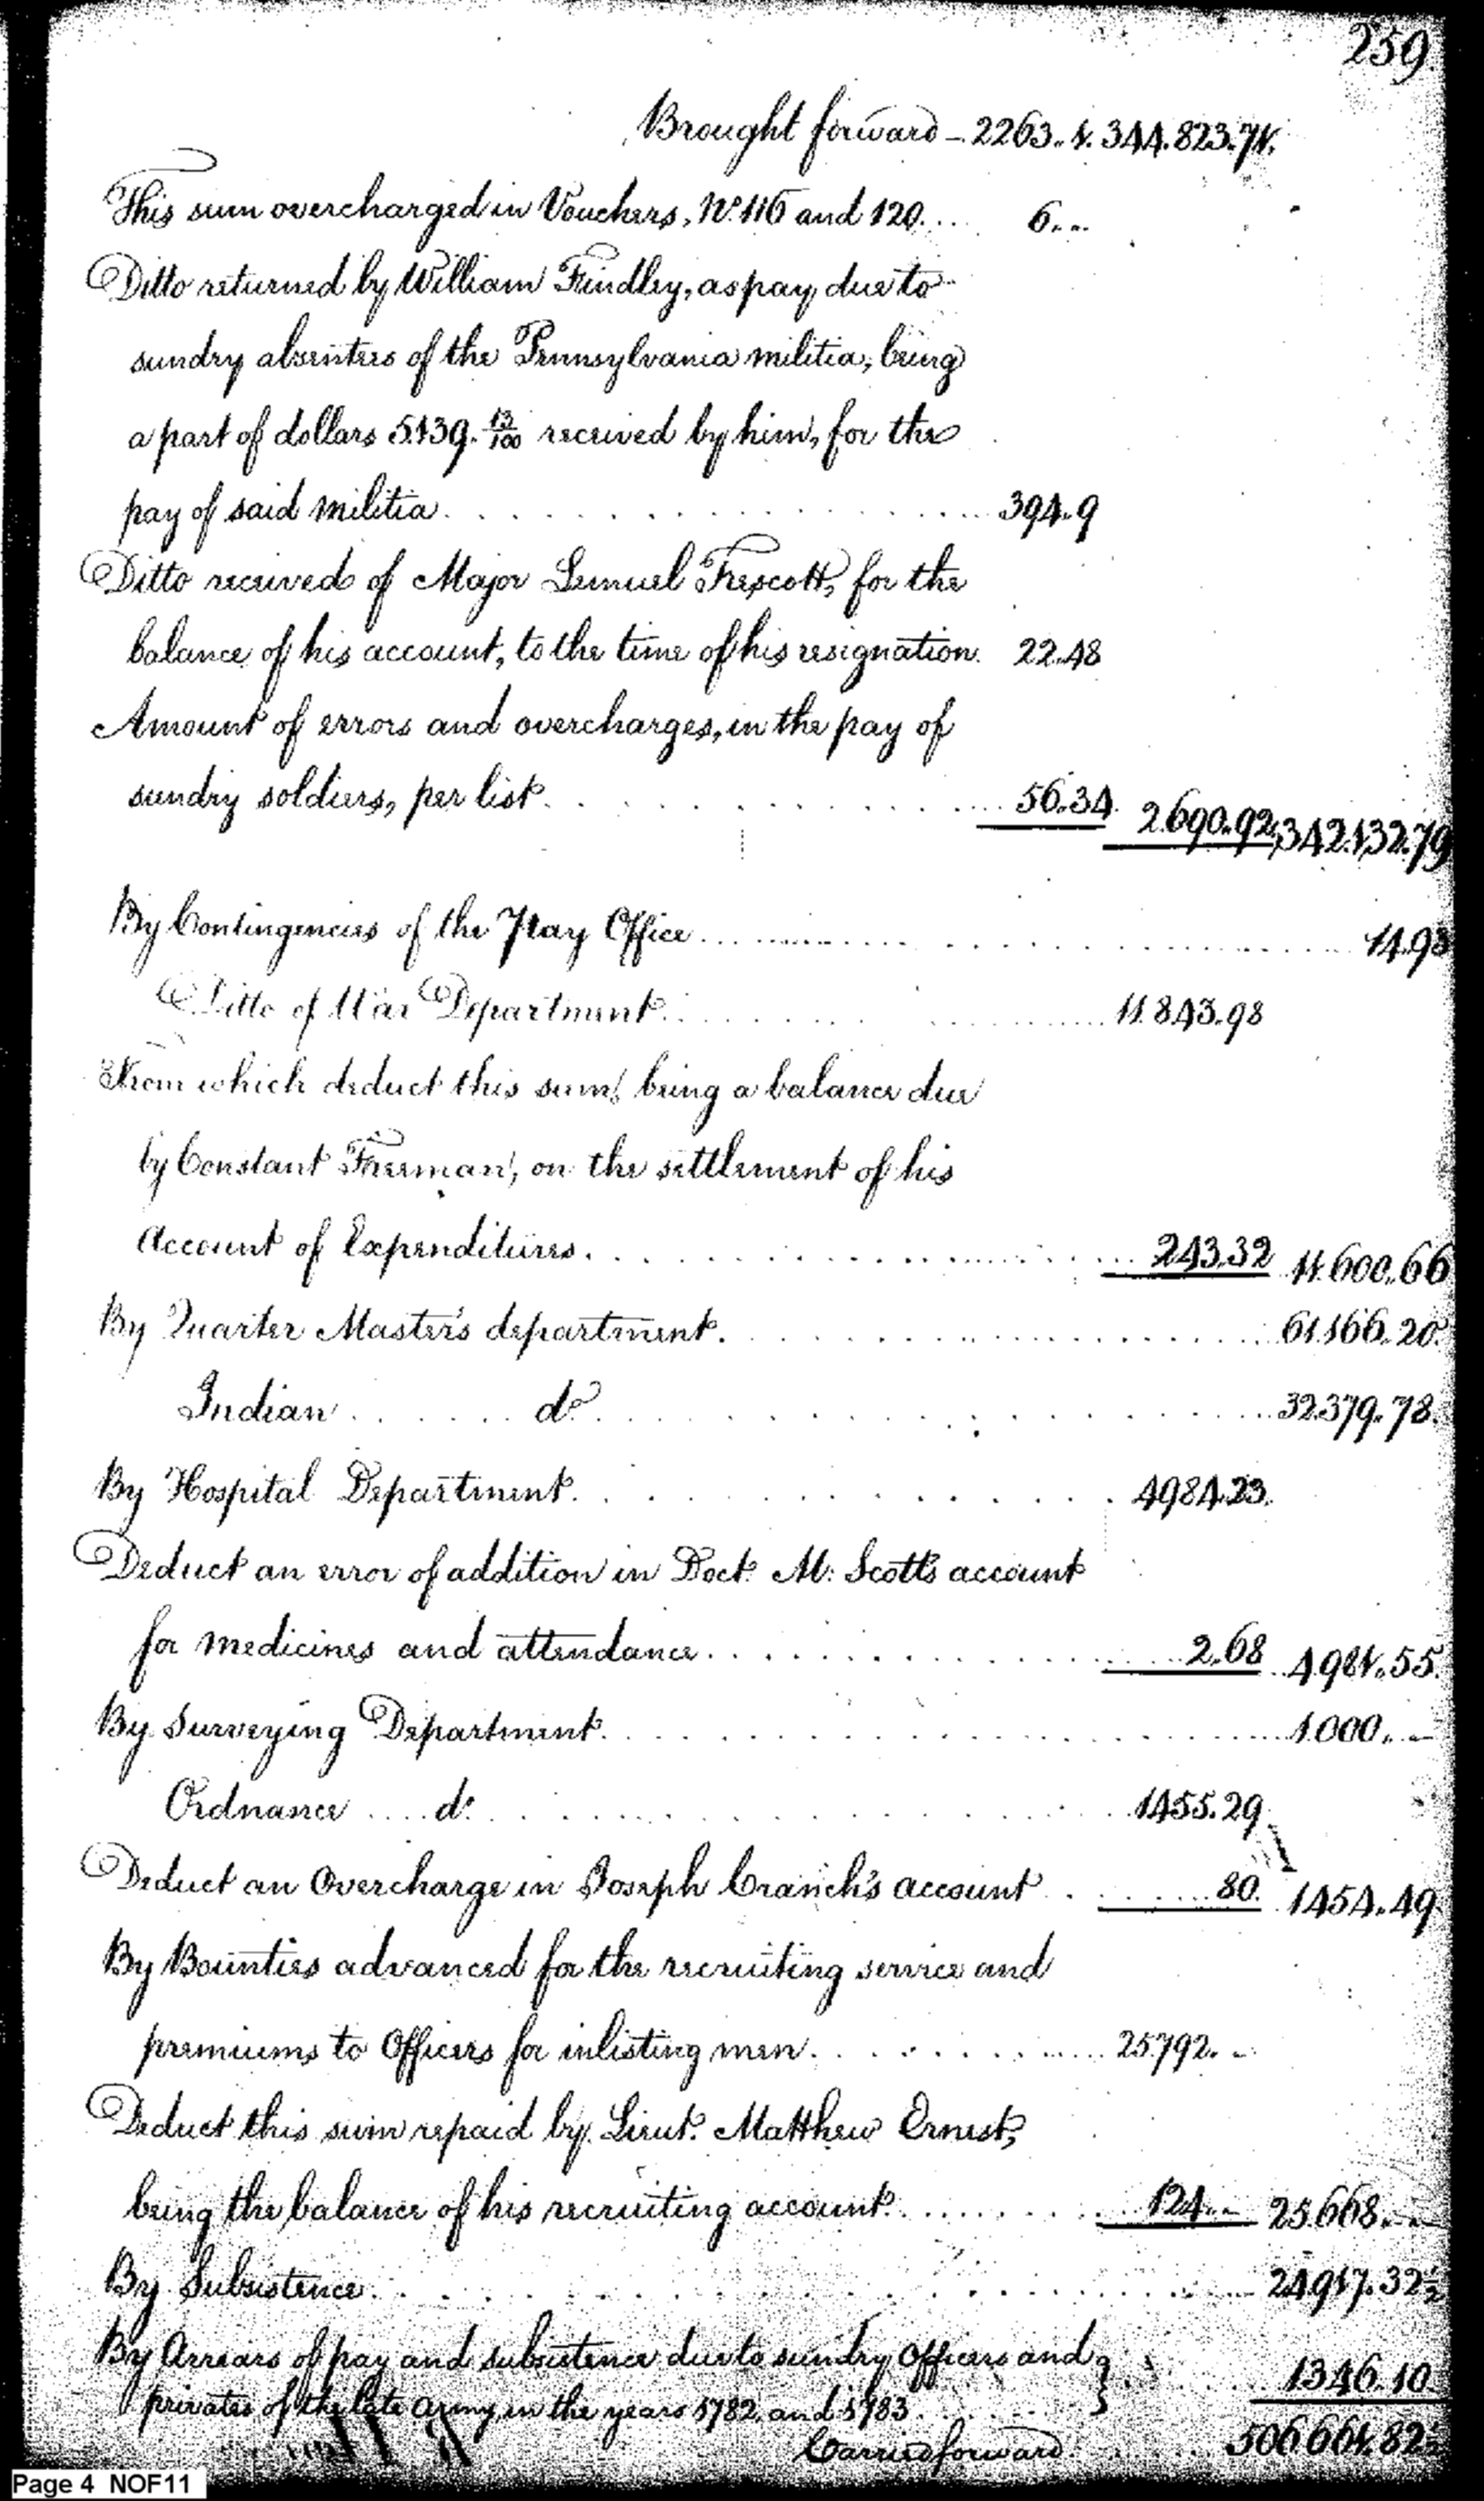 259.
Brought forward – 2263.. 1. 344.823.71.
This sum overcharged in Vouchers, No. 116 and 120.... 6.. ..
Ditto returned by William Findley, as pay due to
sundry absentees of the Pennsylvania militia, being
a part of dollars 5139. 13/100 received by him, for the
pay of said militia. . . . . . . . . 394..9
Ditto received of Major Lemuel Trescott, for the
balance of his account, to the time of his resignation. 22.48
Amount of errors and overcharges, in the pay of
sundry soldiers, per list. . . . . . . . 56..34. 2.690..92, 342.132.79
By Contingencies of the Pay Office . . . . . . . . 14.93
Ditto of War Department. . . . . . . . 11.843..98
From which deduct this sum, being a balance due
by Constant Freeman, on the settlement of his
Account of Expenditures. . . . . . . . 243.32 11.600..66
By Quarter Master's department. . . . . . . . 61.166.20.
Indian . . . . . . do. . . . . . . . 32.379..78.
By Hospital Department. . . . . . . . 4984.23.
Deduct an error of addition in Doct. M: Scott's account
for medicines and attendance. . . . . . . . 2.68 4.981..55.
By Surveying Department. . . . . . . . 1.000.. –
Ordnance .... do. . . . . . . . 1455.29.
Deduct an Overcharge in Joseph Cranch's account . . . . 80. 1454..49.
By Bounties advanced for the recruiting service and
premiums to Officers for inlisting men. . . . . . . . 25.792. –
Deduct this sum repaid by Lieut. Matthew Ernest,
being the balance of his recruiting account. . . . . . 124.. – 25.668.. –
By Subsistence. . . . . . . . 24.917.32½
By Arrears of pay and subsistence due to sundry Officers and }
privates of the late Army, in the years 1782. and 1783. . . . . 1346.10.
Carried forward. . . . 506.661.82½
Page 4 NOF11